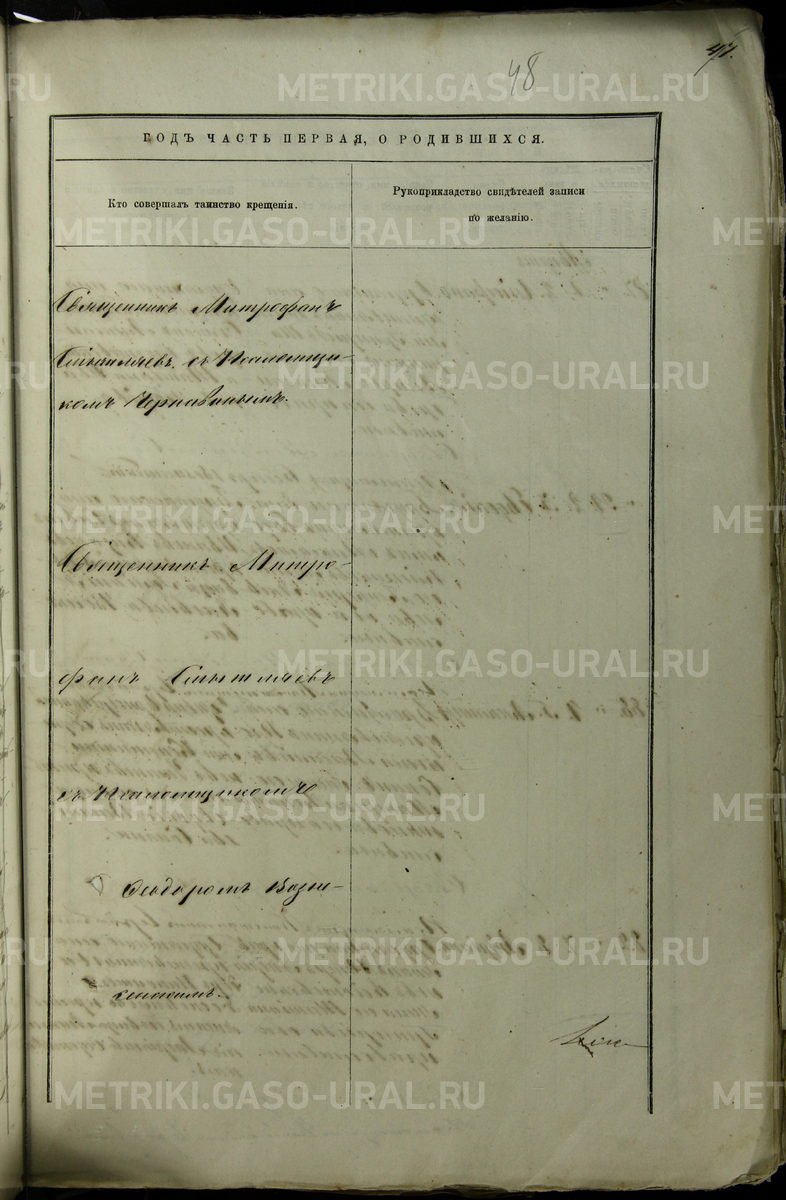 48
47.
ГОДЪ ЧАСТЬ ПЕРВАЯ, О РОДИВШИХСЯ.
Кто совершалъ таинство крещенія.
Рукоприкладство свидѣтелей записи
по желанію.
Священникъ Митрофанъ
Смышляевъ съ Псаломщи-
комъ Чернавинымъ.
Священникъ Митро-
фанъ Смышляевъ
съ Псаломщикомъ
Ѳеодоромъ Возне-
сенскимъ.
METRIKI.GASO-URAL.RU